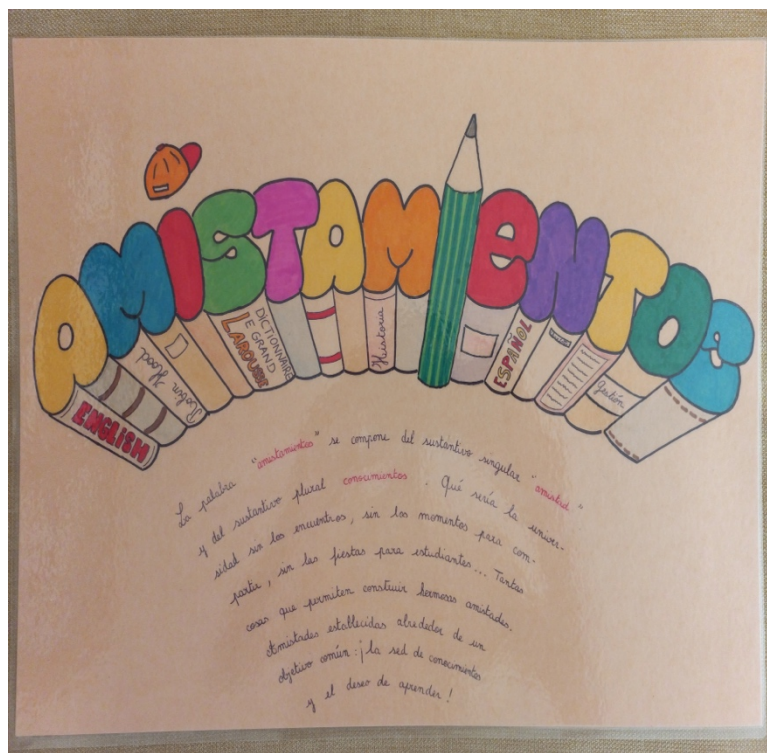 AMISTAMIENTOS
ENGLISH
Robin Hood
DICTIONNAIRE
LE GRAND
LAROUSSE
Historia
ESPAÑOL
gestión
La palabra "amistamientos" se compone del sustantivo singular "amistad"
y del sustantivo plural conocimientos. Qué sería la univer-
sidad sin los encuentros, sin los momentos para com-
partir, sin las fiestas para estudiantes... Tantas
cosas que permiten construir hermosas amistades.
Amistades establecidas alrededor de un
objetivo común: ¡la sed de conocimientos
y el deseo de aprender!